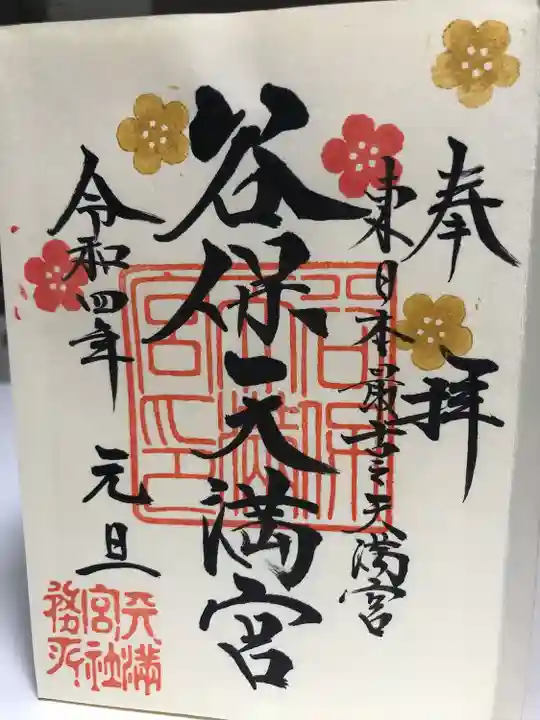 奉拝
東日本最古天満宮
谷保天満宮
令和四年 元旦
谷保天満宮印
天満宮社務所